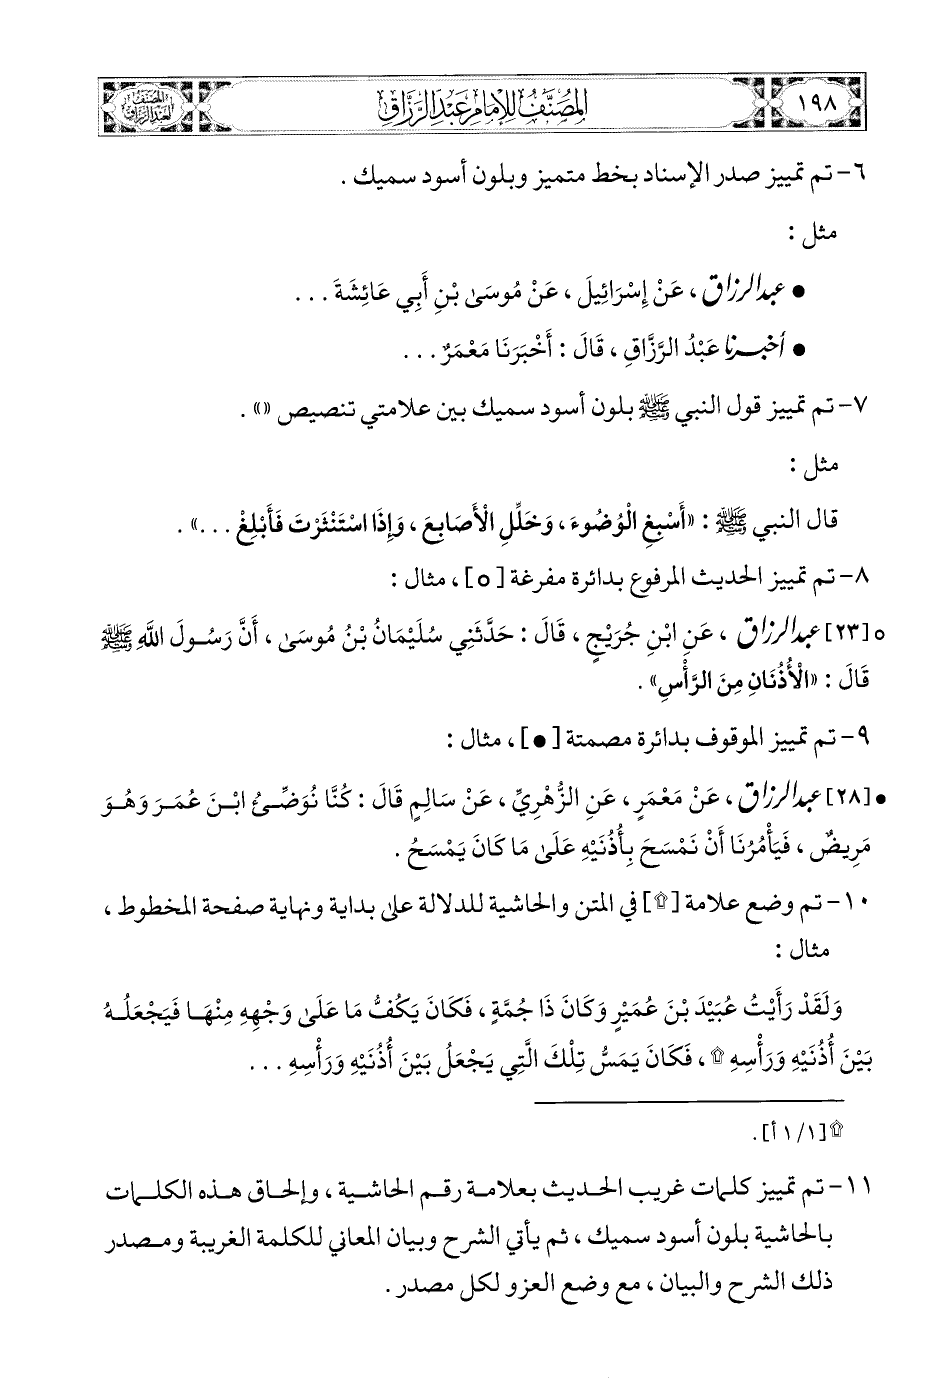 ١٩٨
المصنف للإمام عبد الرزاق
المصنف
لعبد الرزاق
٦- تم تمييز صدر الإسناد بخط متميز وبلون أسود سميك .
مثل :
● عبد الرزاق ، عَنْ إِسْرَائِيلَ ، عَنْ مُوسَىٰ بْنِ أَبِي عَائِشَةَ ...
● أخبرنا عَبْدُ الرَّزَّاقِ ، قَالَ : أَخْبَرَنَا مَعْمَرٌ ...
٧- تم تمييز قول النبي ﷺ بلون أسود سميك بين علامتي تنصيص «» .
مثل :
قال النبي ﷺ : «أَسْبِغِ الْوُضُوءَ ، وَخَلِّلِ الْأَصَابِعَ ، وَإِذَا اسْتَنْثَرْتَ فَأَبْلِغْ ...» .
٨- تم تمييز الحديث المرفوع بدائرة مفرغة [○] ، مثال :
○[٢٣] عبد الرزاق ، عَنِ ابْنِ جُرَيْجٍ ، قَالَ : حَدَّثَنِي سُلَيْمَانُ بْنُ مُوسَىٰ ، أَنَّ رَسُولَ اللَّهِ ﷺ
قَالَ : «الْأُذُنَانِ مِنَ الرَّأْسِ» .
٩- تم تمييز الموقوف بدائرة مصمتة [●] ، مثال :
●[٢٨] عبد الرزاق ، عَنْ مَعْمَرٍ ، عَنِ الزُّهْرِيِّ ، عَنْ سَالِمٍ قَالَ : كُنَّا نُوَضِّئُ ابْنَ عُمَرَ وَهُوَ
مَرِيضٌ ، فَيَأْمُرُنَا أَنْ نَمْسَحَ بِأُذُنَيْهِ عَلَىٰ مَا كَانَ يَمْسَحُ .
١٠- تم وضع علامة [۩] في المتن والحاشية للدلالة على بداية ونهاية صفحة المخطوط ،
مثال :
وَلَقَدْ رَأَيْتُ عُبَيْدَ بْنَ عُمَيْرٍ وَكَانَ ذَا جُمَّةٍ ، فَكَانَ يَكُفُّ مَا عَلَىٰ وَجْهِهِ مِنْهَا فَيَجْعَلُهُ
بَيْنَ أُذُنَيْهِ وَرَأْسِهِ ۩ ، فَكَانَ يَمَسُّ تِلْكَ الَّتِي يَجْعَلُ بَيْنَ أُذُنَيْهِ وَرَأْسِهِ ...
۩[١/١ أ] .
١١- تم تمييز كلمات غريب الحديث بعلامة رقم الحاشية ، وإلحاق هذه الكلمات
بالحاشية بلون أسود سميك ، ثم يأتي الشرح وبيان المعاني للكلمة الغريبة ومصدر
ذلك الشرح والبيان ، مع وضع العزو لكل مصدر .